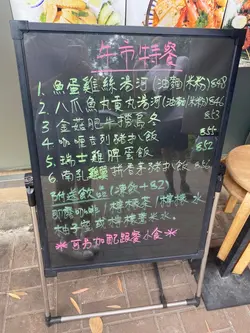 牛市特餐
1. 魚蛋雞絲湯河(油麵/米粉) $48
2. 八爪魚丸黃丸湯河(油麵/米粉) $46
3. 金菇肥牛撈烏冬 $43
4. 咖喱吉列豬扒飯 $50
5. 瑞士雞脾蛋飯 $52
6. 南乳雞翼拼香茅豬扒飯
附送飲品 (凍飲+$2)
即磨咖啡/檸檬茶/檸檬水
柚子蜜或檸檬薏米水
*可另加配跟餐小食*